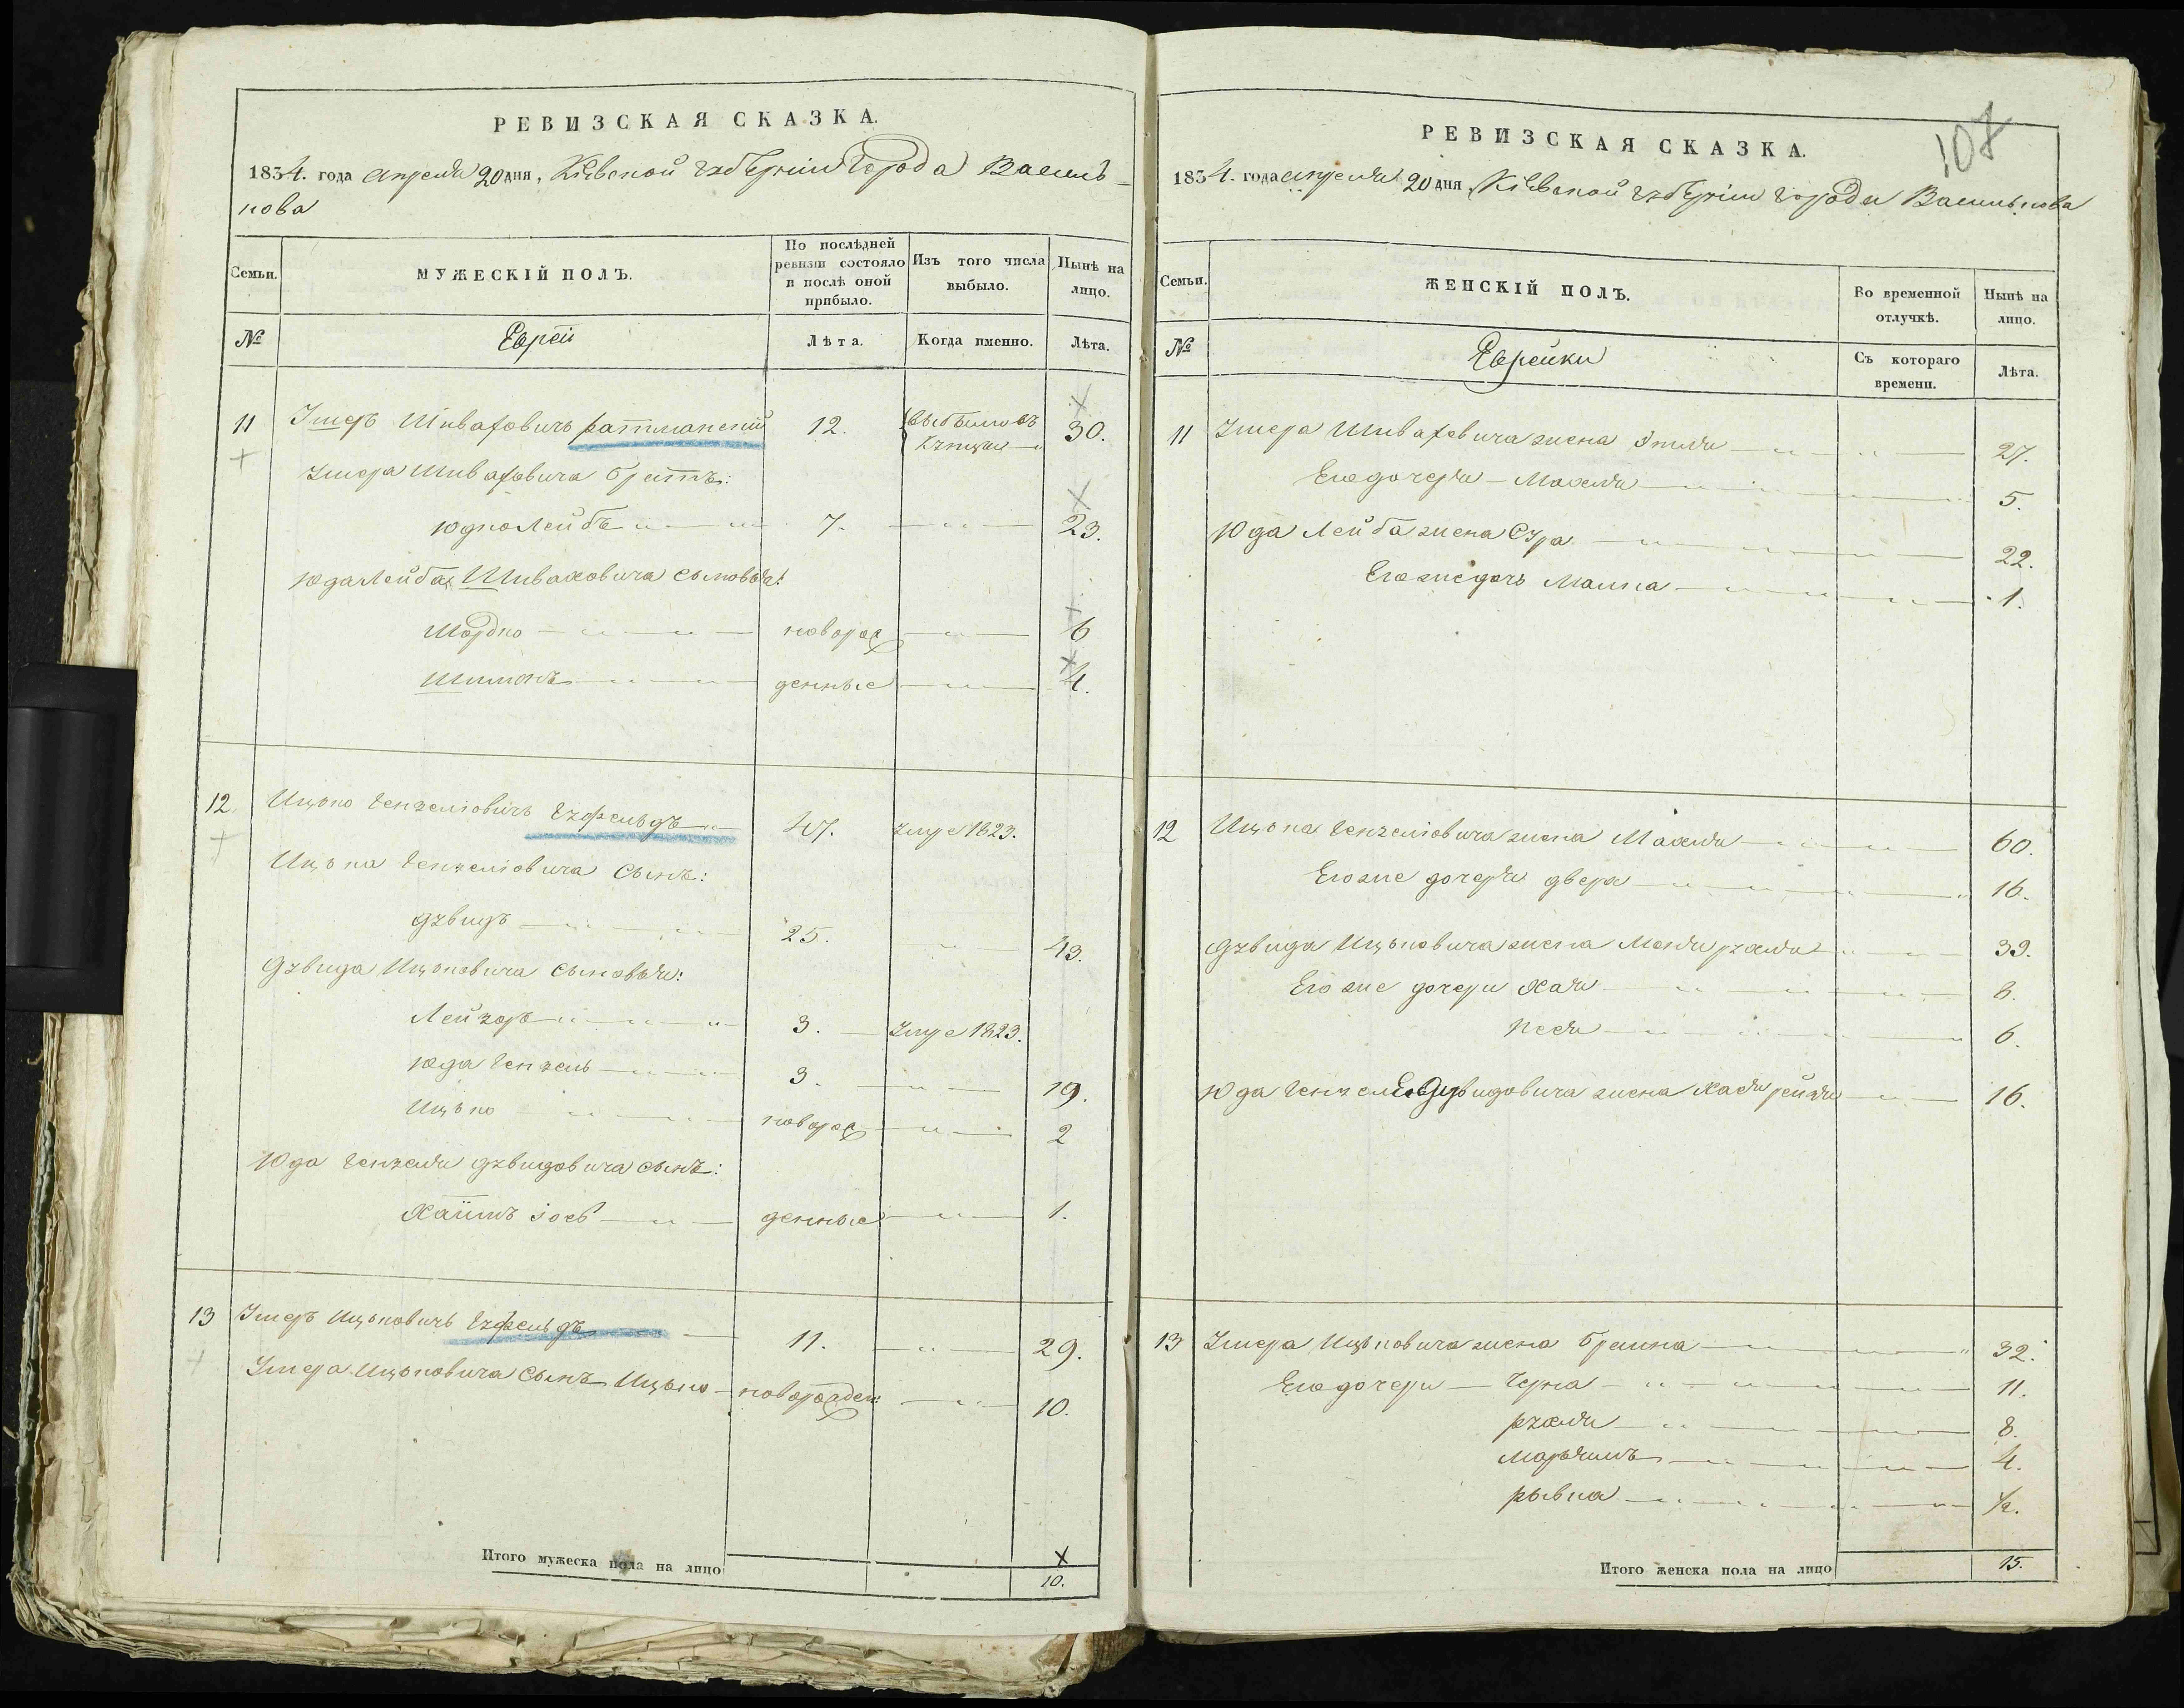 РЕВИЗСКАЯ СКАЗКА.
1834. года апреля 20 дня, Кіевской губерніи Города Василь-
кова
Семьи.
МУЖЕСКІЙ ПОЛЪ.
По послѣдней ревизіи состояло и послѣ оной прибыло.
Изъ того числа выбыло.
Нынѣ на лицо.
№
Евреи
Лѣта.
Когда именно.
Лѣта.
11 Умеръ Шваховичъ 12. 30.
Умера Шваховича братъ:
Юдко Лейбъ 7. 23.
Юда Лейба Шваховича сыновья:
Мордко новорож 6
Шимонъ денные 4.
12 Ицько Гензелiовичъ Гуфельдъ 47. умре 1823.
Ицька Гензелiовича Сынъ:
Дувидъ 25. 43.
Дувида Ицьковича сыновья:
Лейзоръ 3. умре 1823.
Юда Гензель 3. 19.
Ицько новорож 2
Юда Гензеля Дувидовича сынъ:
Хаимъ Іось денные 1.
13 Умеръ Ицьковичъ Гуфельдъ 11. 29.
Умера Ицьковича Сынъ Ицько новорожден 10.
Итого мужеска пола на лицо
10.
107
РЕВИЗСКАЯ СКАЗКА.
1834. года апреля 20 дня Кіевской губерніи города Василькова
Семьи.
ЖЕНСКІЙ ПОЛЪ.
Во временной отлучкѣ.
Нынѣ на лицо.
№
Еврейки
Съ котораго времени.
Лѣта.
11 Умера Шваховича жена Этля 27.
Его дочеря Махля 5.
Юда Лейба жена Сура 22.
Его же дочь Малка 1.
12 Ицька Гензелiовича жена Махля 60.
Его же дочеря двера 16.
Дувида Ицьковича жена рухля 39.
Его же дочери Хая 8.
Песя 6.
Юда Дувидовича жена Хая рейзя 16.
13 Умера Ицьковича жена Браина 32.
Его дочери Черна 11.
рухля 8.
Марьямъ 4.
рывка ½.
Итого женска пола на лицо
15.